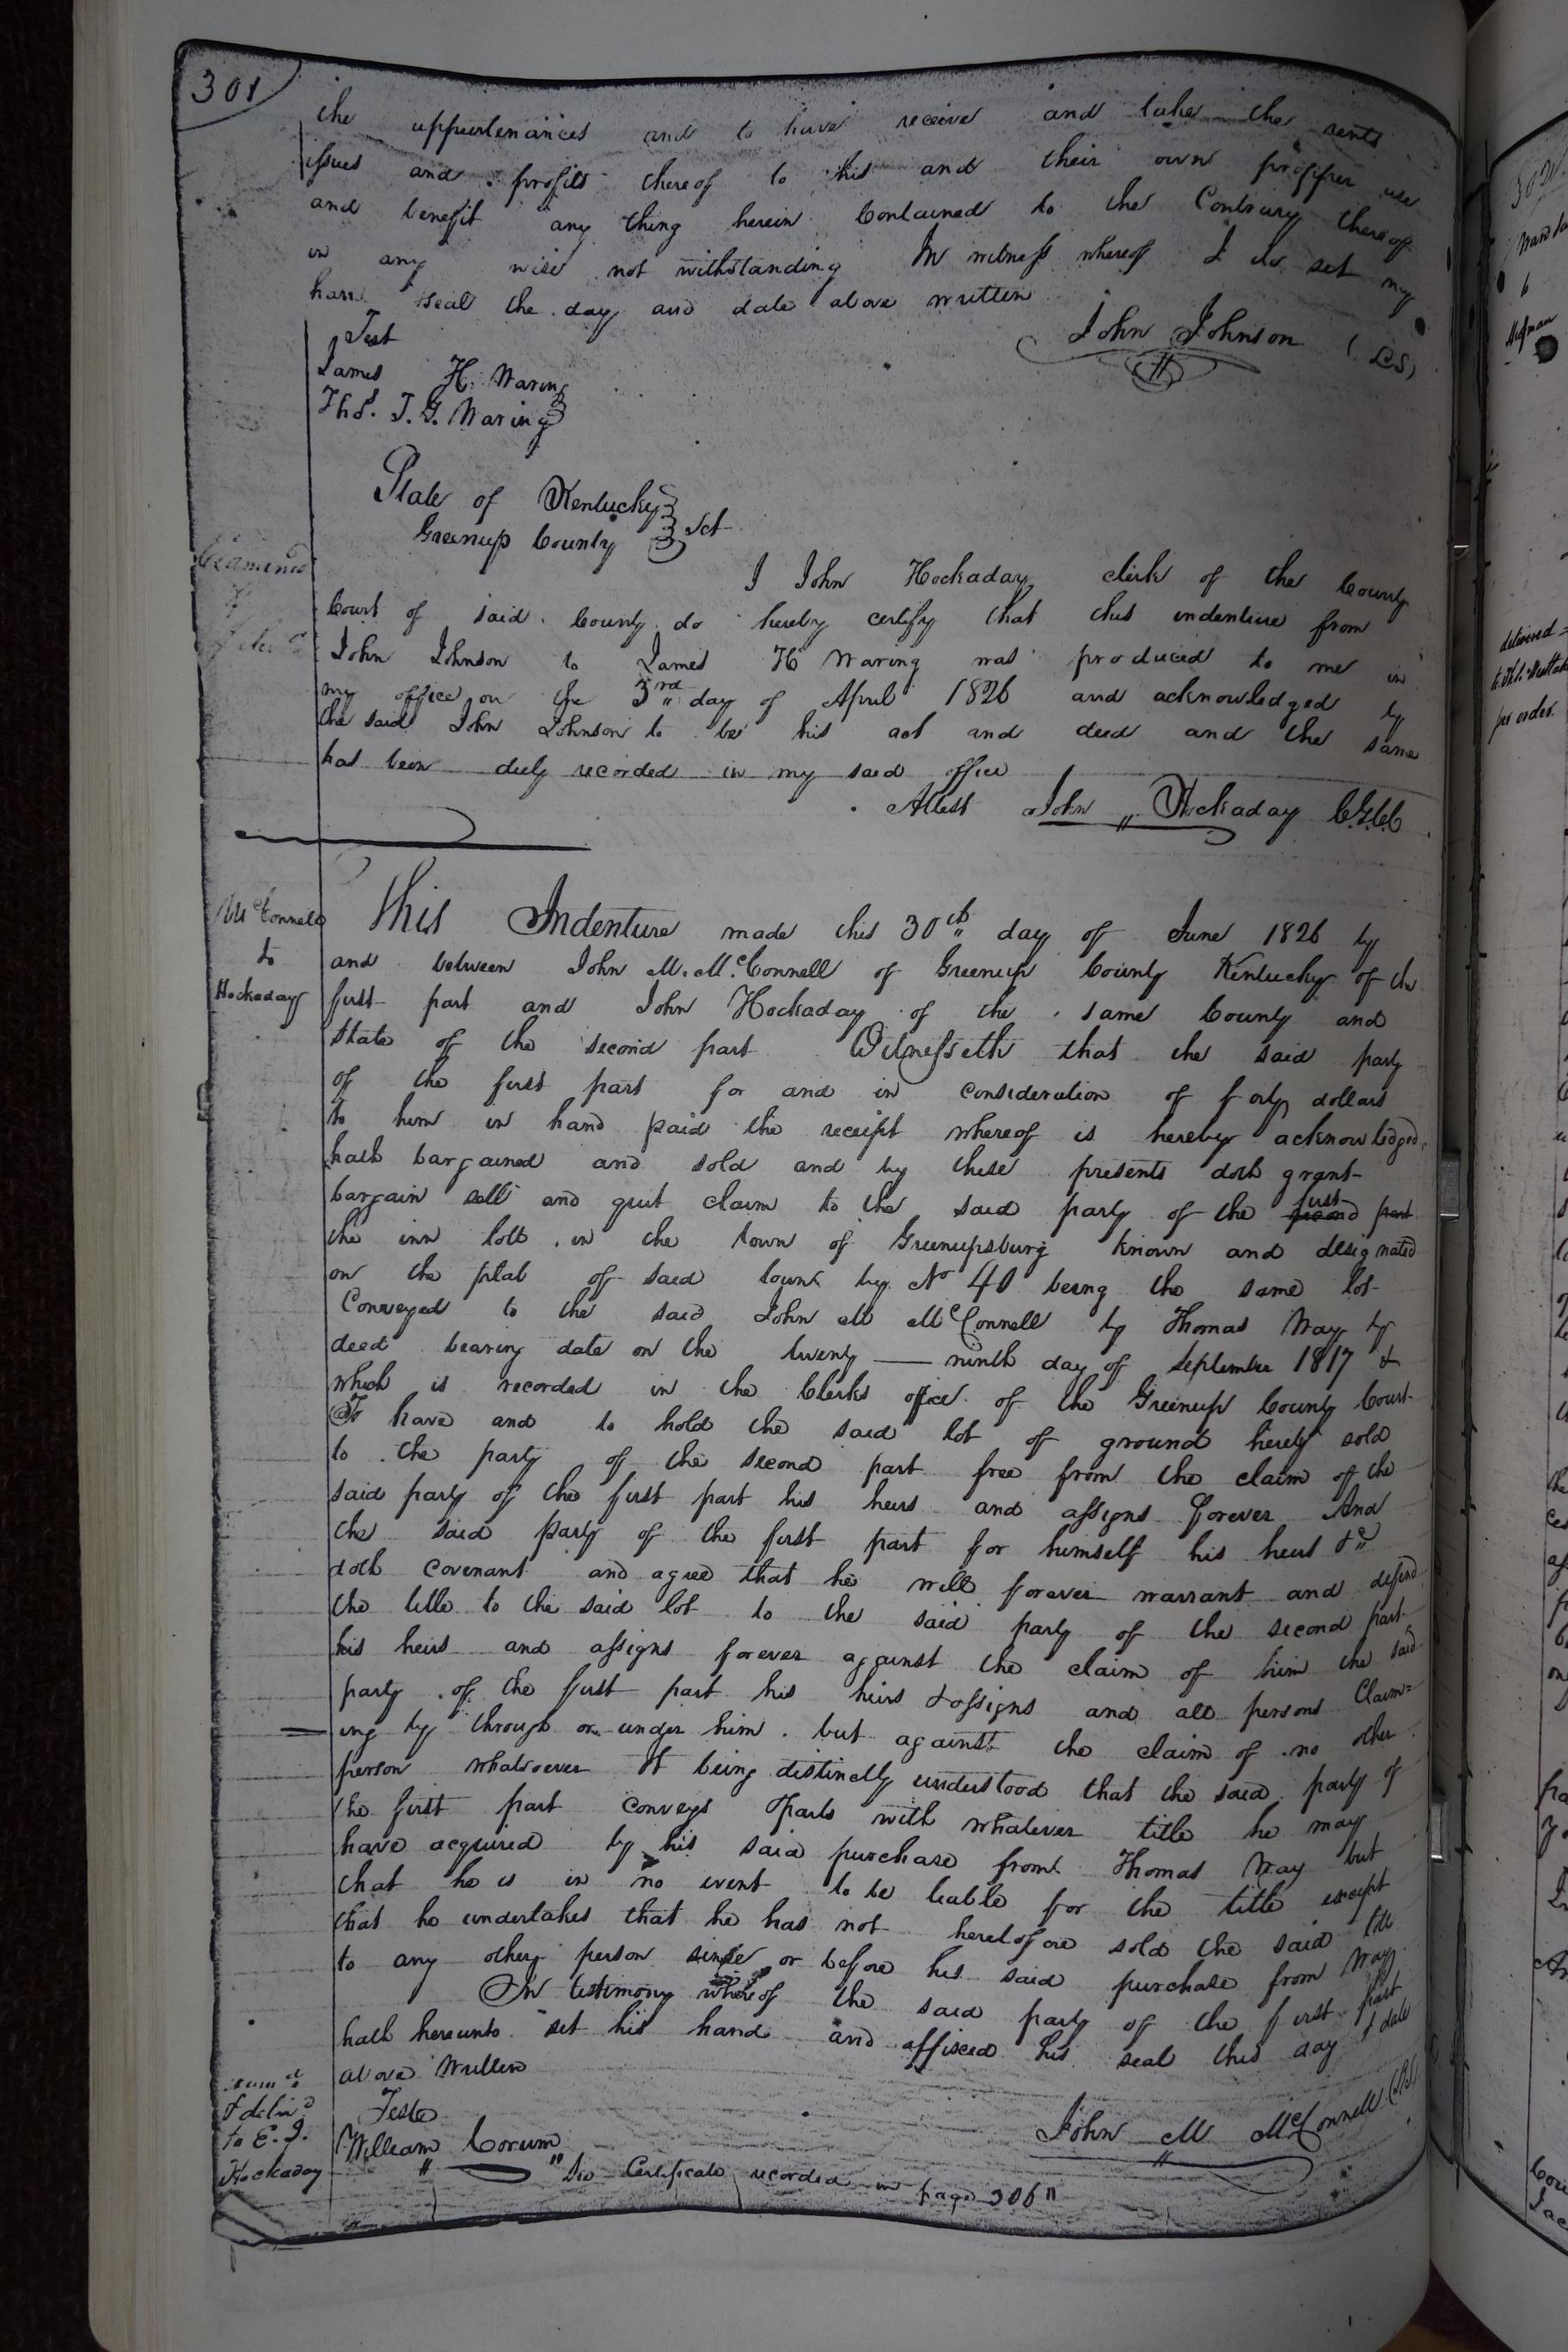 301
the appurtenances and to have receive and take the rents
issues and profits thereof to his and their own propper use
and benefit any thing herein Contained to the Contrary thereof
in any wise not withstanding In witness whereof I do set my
hand seal the day and date above written
John Johnson (LS)
Test
James H. Waring
Thos. T. G. Waring
State of Kentucky
Greenup County } Sct
Examined
I John Hockaday clerk of the County
Court of said County do hereby certify that this indenture from
John Johnson to James H Waring was produced to me in
my office on the 3rd day of April 1826 and acknowledged by
the said John Johnson to be his act and deed and the same
has been duly recorded in my said office
Attest John Hockaday C.G.C.C
McConnell
to
Hockaday
This Indenture made this 30th day of June 1826 by
and between John M. McConnell of Greenup County Kentucky of the
first part and John Hockaday of the same County and
State of the second part Witnesseth that the said party
of the first part for and in consideration of forty dollars
to him in hand paid the receipt whereof is hereby acknowledged
hath bargained and sold and by these presents doth grant
bargain sell and quit claim to the said party of the first second part
the inn lott in the town of Greenupsburg known and designated
on the plat of said town by No 40 being the same lot
Conveyed to the said John M McConnell by Thomas Way by
deed bearing date on the twenty — ninth day of September 1817 &
which is recorded in the Clerks office of the Greenup County Court
To have and to hold the said lot of ground herely sold
to the party of the second part free from the claim of the
said party of the first part his heirs and assigns forever And
the said party of the first part for himself his heirs &c
doth covenant and agree that he will forever warrant and defend
the title to the said lot to the said party of the second part
his heirs and assigns forever against the claim of him the said
party of the first part his heirs & assigns and all persons Claim=
ing by through or under him but against the claim of no other
person whatsoever It being distinctly understood that the said party of
the first part conveys & parts with whatever title he may
have acquired by his said purchase from Thomas Way but
that he is in no event to be liable for the title except
that he undertakes that he has not heretofore sold the said title
to any other person since or before his said purchase from Way
In testimony whereof the said party of the first part
hath hereunto set his hand and affixed his seal this day & date
above Written
Teste
William Corum
John M McConnell (LS)
& delivd
to E. J.
Hockaday
See Certificate recorded in page 306
302
delivered =
per order.